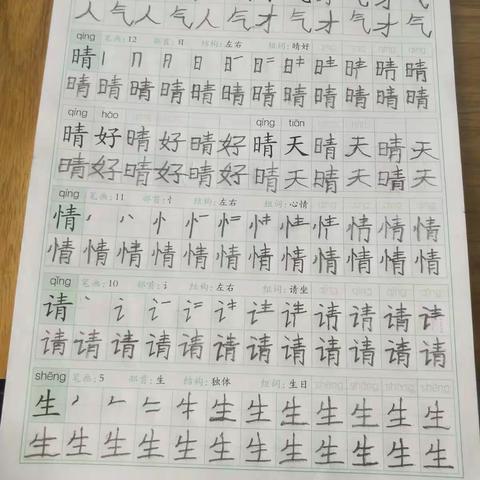 人气人气人气才气才气才气
qíng 笔画:12 部首:日 结构:左右 组词:晴好
晴丨冂日日晴晴晴晴
晴晴晴晴晴晴晴晴晴晴晴晴
qíng hǎo qíng tiān
晴好晴好晴好晴天晴天晴天
晴好晴好晴好晴天晴天晴天
qíng 笔画:11 部首:忄 结构:左右 组词:心情
情丶丷忄情情情情
情情情情情情情情情情情情
qǐng 笔画:10 部首:讠 结构:左右 组词:请坐
请丶讠请请请请
请请请请请请请请请请请请
shēng 笔画:5 部首:生 结构:独体 组词:生日
shēng shēng shēng shēng
生丿𠂉牛生生生生生生生生
生生生生生生生生生生生生